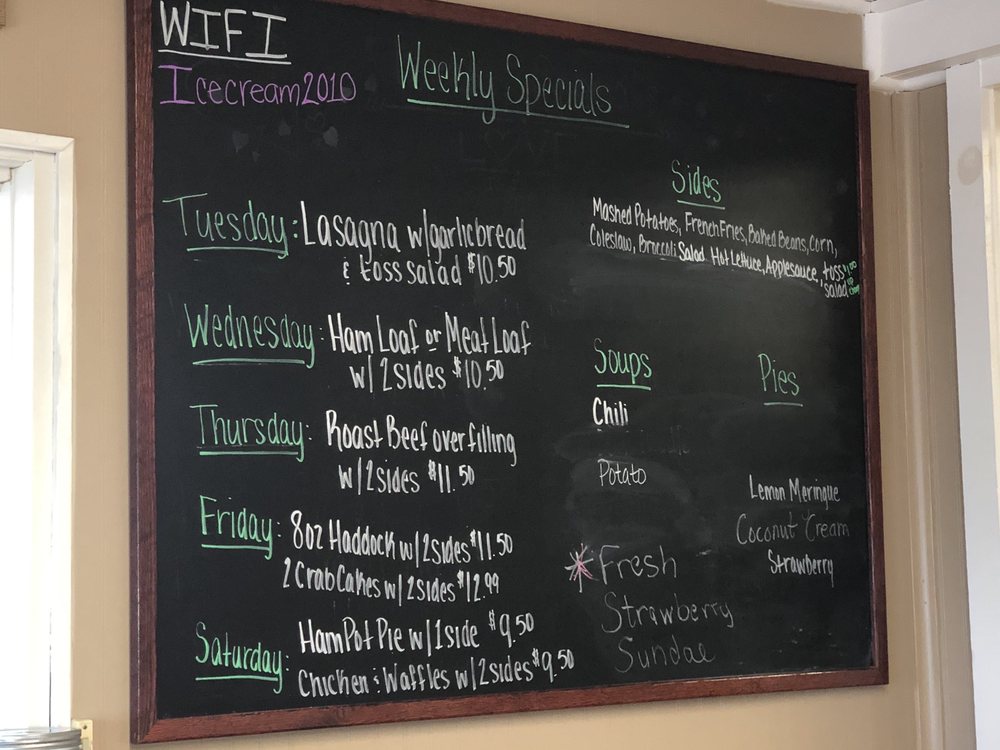 WIFI
Icecream2010
Weekly Specials
Tuesday: Lasagna w/garlicbread
& toss salad $10.50
Wednesday: Ham Loaf or Meat Loaf
w/ 2 sides $10.50
Thursday: Roast Beef over filling
w/ 2 sides $11.50
Friday: 8oz Haddock w/ 2 sides $11.50
2 Crab Cakes w/ 2 sides $12.99
Saturday: Ham Pot Pie w/ 1 side $9.50
Chicken & Waffles w/ 2 sides $9.50
Sides
Mashed Potatoes, French Fries, Baked Beans, Corn,
Coleslaw, Broccoli Salad Hot Lettuce, Applesauce, toss
salad
Soups
Chili
Potato
Fresh
Strawberry
Sundae
Pies
Lemon Meringue
Coconut Cream
Strawberry